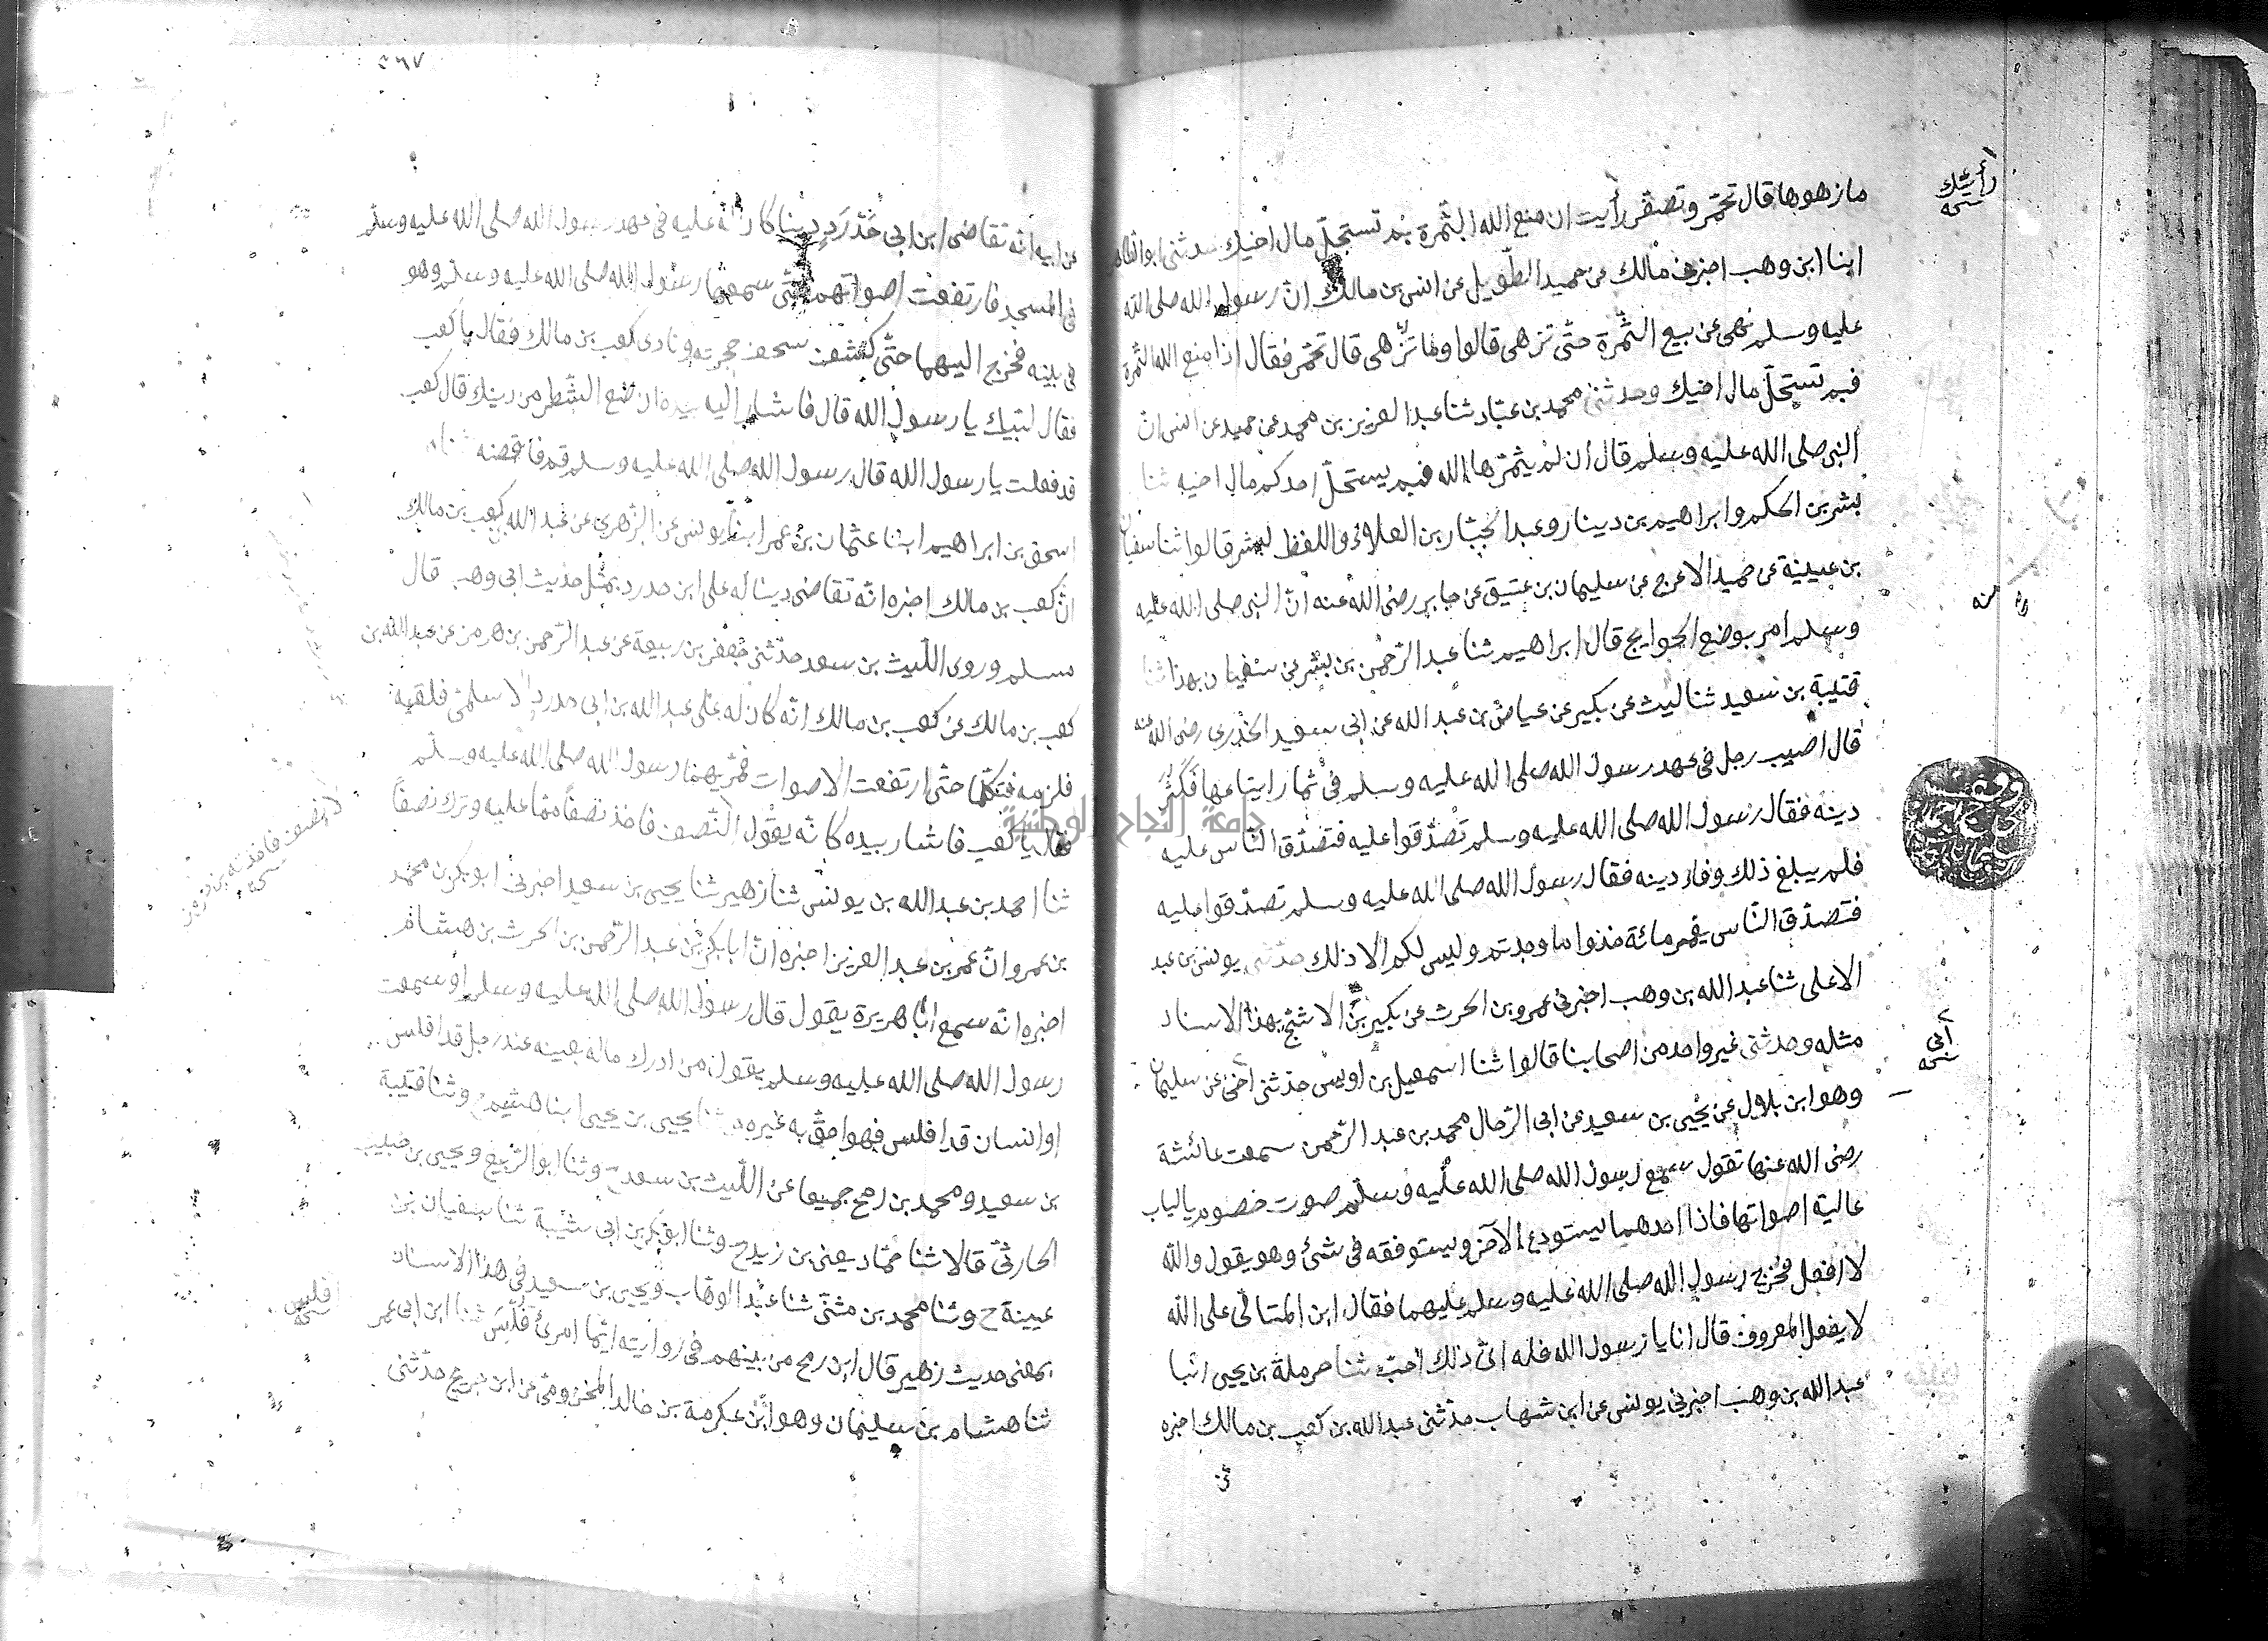 ما زهوها قال تحمر وتصفر أرأيت ان منع الله الثمرة بم تستحل مال اخيك حدثنى ابو الطاهر
ابنا ابن وهب اخبرنى مالك عن حميد الطويل عن انس بن مالك انّ رسول الله صلى الله
عليه وسلم نهى عن بيع الثمرة حتّى تزهى قالوا وما تزهى قال تحمر فقال اذا منع الله الثمرة
فبم تستحلّ مال اخيك وحدثنى محمد بن عبّاد ثنا عبد العزيز بن محمد عن حميد عن انس انّ
النبى صلى الله عليه وسلم قال ان لم يثمرها الله فبم يستحلّ احدكم مال اخيه ثنا
بشر بن الحكم وابراهيم بن دينار وعبد الجبّار بن العلاء واللفظ لبشر قالوا ثنا سفيان
بن عيينة عن حميد الاعرج عن سليمان بن عتيق عن جابر رضى الله عنه انّ النبى صلى الله عليه
وسلم امر بوضع الجوايح قال ابراهيم ثنا عبد الرّحمن بن بشر عن سفيان بهذا ثنا
قتيبة بن سعيد ثنا ليث عن بكير عن عياض بن عبد الله عن ابى سعيد الخدرى رضى الله عنه
قال اصيب رجل فى عهد رسول الله صلى الله عليه وسلم فى ثمار ابتاعها فكثر
دينه فقال رسول الله صلى الله عليه وسلم تصدّقوا عليه فتصدّق النّاس عليه
فلم يبلغ ذلك وفاء دينه فقال رسول الله صلى الله عليه وسلم تصدّقوا عليه
فتصدّق النّاس خذوا ما وجدتم وليس لكم الا ذلك حدّثنى يونس بن عبد
الاعلى ثنا عبد الله بن وهب اخبرنى عمرو بن الحرث عن بكير بن الاشج بهذا الاسناد
مثله وحدثنى غير واحد من اصحابنا قالوا ثنا اسمعيل بن اويس حدّثنى أخى عن سليمان
وهو ابن بلال عن يحيى بن سعيد عن ابى الرّجال محمد بن عبد الرّحمن سمعت عائشة
رضى الله عنها تقول سمع رسول الله صلى الله عليه وسلّم صوت خصوم بالباب
عالية اصواتها فاذا احدهما يستوضع الآخر ويستوفقه فى شئ وهو يقول والله
لا افعل فخرج رسول الله صلى الله عليه وسلم عليهما فقال اين المتألّى على الله
لا يفعل المعروف قال انا يا رسول الله فله اىّ ذلك احبّ ثنا حرملة بن يحيى انبا
عبد الله بن وهب اخبرنى يونس عن ابن شهاب حدّثنى عبد الله بن كعب بن مالك اخبره
عن
أرأيتك
أبى
٢٦٧
عن ابيه انّه تقاضى ابن ابى حَدْرَدٍ دينا كان له عليه فى عهد رسول الله صلى الله عليه وسلّم
فى المسجد فارتفعت اصواتهما حتّى سمعها رسول الله صلى الله عليه وسلم وهو
فى بيته فخرج اليهما حتّى كشف سجف حجرته ونادى كعب بن مالك فقال يا كعب
فقال لبّيك يا رسول الله قال فاشار اليه بيده ان ضع الشّطر من دينك قال كعب
قد فعلت يا رسول الله قال رسول الله صلى الله عليه وسلم قم فاقضه ثنا
اسحق بن ابراهيم ابنا عثمان بن عمر ابنا يونس عن الزّهرى عن عبد الله بن كعب بن مالك
انّ كعب بن مالك اخبره انّه تقاضى دينا له على ابن حدرد بمثل حديث ابن وهب قال
مسلم وروى اللّيث بن سعد حدّثنى جعفر بن ربيعة عن عبد الرّحمن بن هرمز عن عبد الله بن
كعب بن مالك عن كعب بن مالك انّه كان له على عبد الله بن ابى حدرد الاسلمىّ فلقيه
فلزمه فتكلّما حتّى ارتفعت الاصوات فمرّ بهما رسول الله صلى الله عليه وسلّم
فقال يا كعب فاشار بيده كانّه يقول النّصف فاخذ نصفاً ممّا عليه وترك نصفاً
ثنا احمد بن عبد الله بن يونس ثنا زهير ثنا يحيى بن سعيد اخبرنى ابو بكر بن محمد
بن عمرو انّ عمر بن عبد العزيز اخبره انّ ابا بكر بن عبد الرّحمن بن الحرث بن هشام
اخبره انّه سمع ابا هريرة يقول قال رسول الله صلى الله عليه وسلم او سمعت
رسول الله صلى الله عليه وسلم يقول من ادرك ماله بعينه عند رجل قد افلس
او انسان قد افلس فهو احقّ به غيره ثنا يحيى بن يحيى ابنا هشيم ح وثنا قتيبة
بن سعيد ومحمد بن رمح جميعا عن اللّيث بن سعد ح وثنا ابو الرّبيع ويحيى بن حبيب
الحارثىّ قالا ثنا حمّاد يعنى بن زيد ح وثنا ابو بكر بن ابى شيبة ثنا سفيان بن
عيينة ح وثنا محمد بن مثنّى ثنا عبد الوهّاب ويحيى بن سعيد فى هذا الاسناد
بمعنى حديث زهير قال ابن رمح من بينهم فى روايته ايّما امرئ فلّس ثنا ابن ابى عمر
ثنا هشام بن سليمان وهو ابن عكرمة بن خالد المخزومى عن ابن جريج حدّثنى
افلس
جامعة النجاح الوطنية